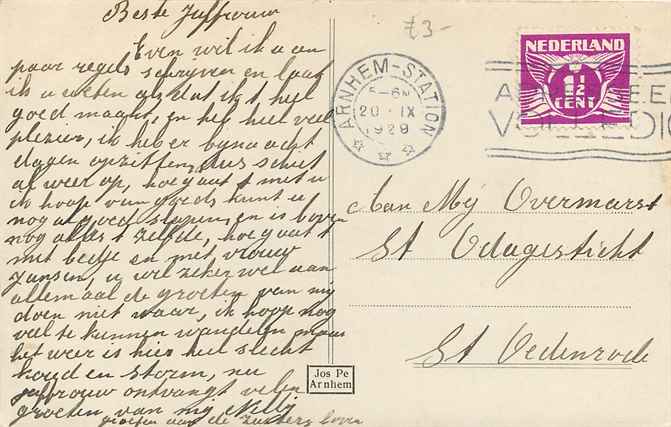 Beste Juffrouw
Even wil ik u een
paar regels schrijven en laat
ik u weten als dat ik t heel
goed maak, en het heel veel
plezier, ik heb er bijna acht
dagen opzitten, dus schiet
al weer op, hoe gaat t met u
ik hoop van goeds kunt u
nog al goed slapen, en is boven
nog alles t zelfde, hoe gaat t
met beetje en met vrouw
Jansen, u wil zeker wel aan
allemaal de groeten van mij
doen niet waar, ik hoop nog
veel te kunnen wandelen maar
het weer is hier heel slecht
koud en storm, nu
juffrouw ontvangt velen
groeten van mij Nelly
groeten aan de zusters boven
£3-
ARNHEM-STATION
5-6N
20 IX
1929
NEDERLAND
1½
CENT
Aan Mej Overmars
St Odagesticht
St Oedenrode
Jos Pé
Arnhem